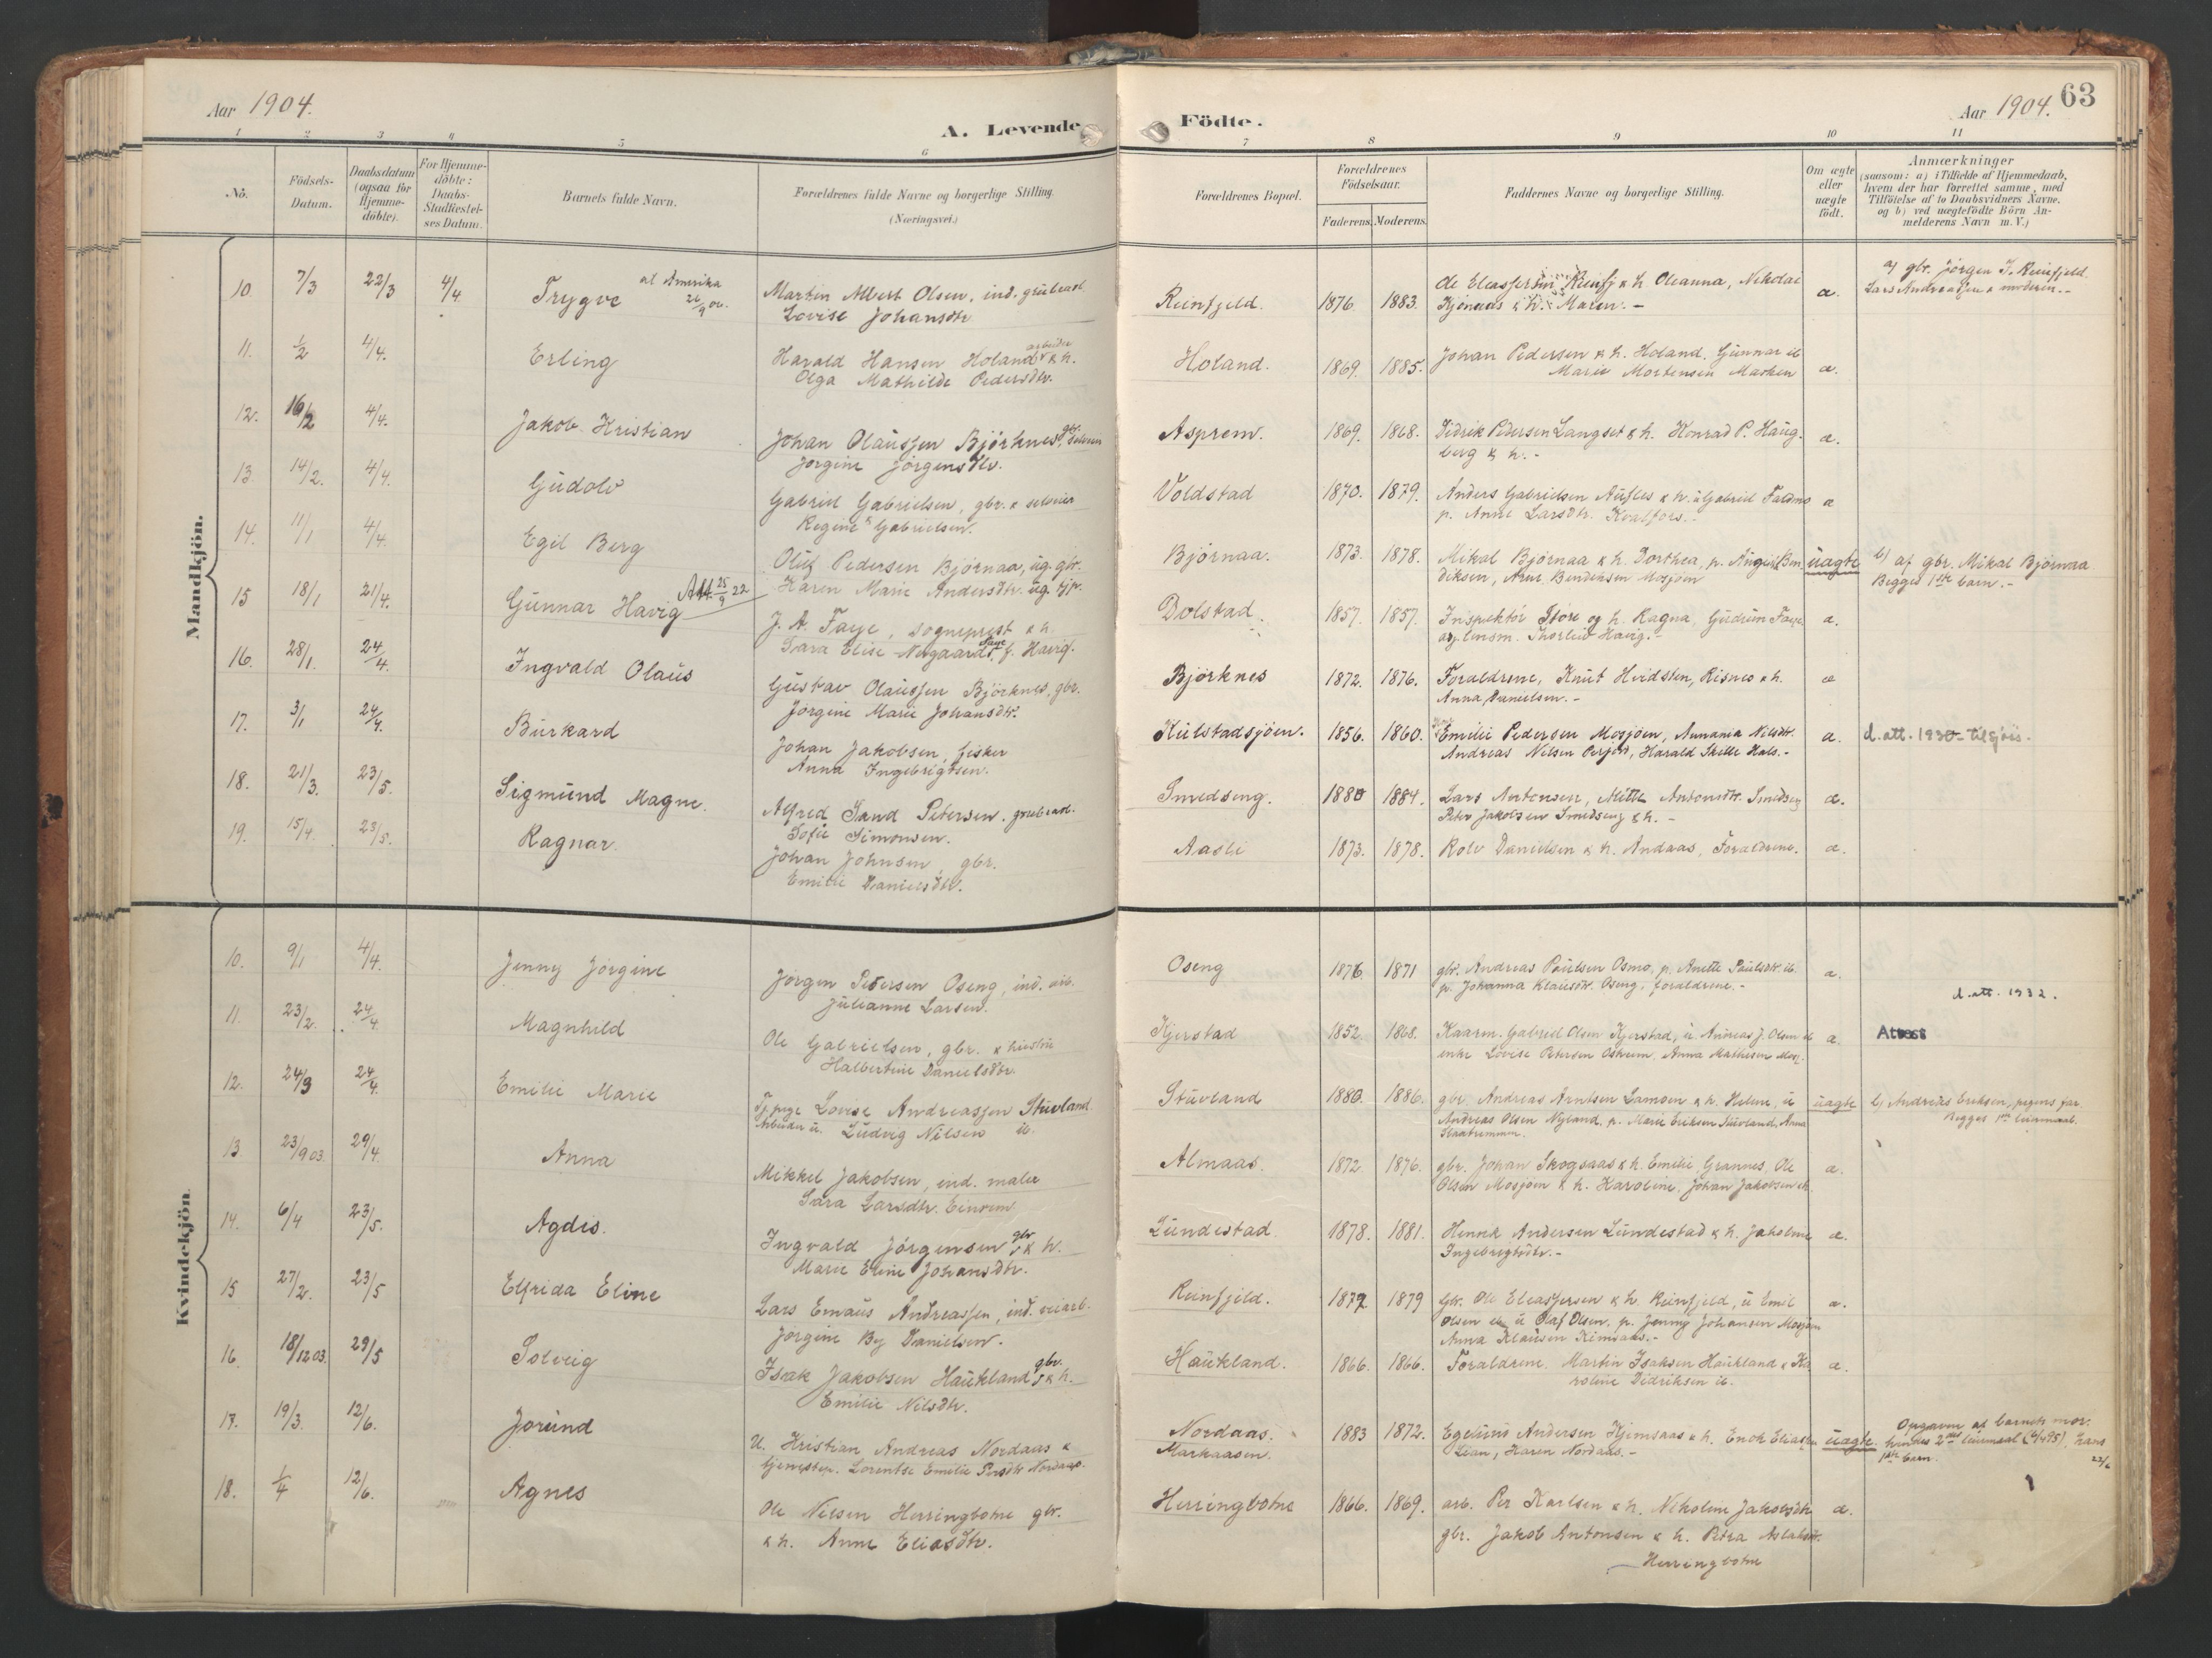 Aar 1904.
A. Levende
Födte.
Aar 1904.
63
1 2 3 4 5 6 7 8 9 10 11
No.
Födsels-Datum.
Daabsdatum (ogsaa for Hjemme-döbte).
For Hjemme-döbte: Daabs-Stadfæstel-ses Datum.
Barnets fulde Navn.
Forældrenes fulde Navne og borgerlige Stilling.
(Næringsvei.)
Forældrenes Bopæl.
Forældrenes Födselsaar.
Faderens. Moderens.
Faddernes Navne og borgerlige Stilling.
Om ægte eller uægte födt.
Anmærkninger
(saasom: a) i Tilfælde af Hjemmedaab,
hvem der har forrettet samme, med
Tilföielse af to Daabsvidners Navne.
og b) ved uægtefödte Börn An-
melderens Navn m. V.)
Mandkjön.
10. 7/3 22/3 4/4 Trygve at Amerika 26/9 06. Martin Albert Olsen, ind. grubearb. Reinfjeld. 1876 1883. Ole Eliassen Reinfj & h. Oleanna, Nikolai æ. a) gbr. Jörgen J. Reinfjeld.
Lovise Johansdtr. Kjönaas & h. Maren. - Lars Andreassen & moderen. -
11. 1/2 4/4. Erling Harald Hansen Holand arbeider & h. Holand. 1869. 1885. Johan Pedersen & h. Holand. Gunnar ib æ.
Olga Mathilde Pedersdtr. Marie Mortensen Marken
12. 16/2 4/4. Jakob Kristian Johan Olaussen Björknes, gbr. Selveier Asprem. 1869. 1868. Didrik Pedersen Langset & h. Konrad P. Haug- æ.
Jorgine Jörgensdtr. berg & h. -
13. 14/2. 4/4. Gudolv Gabriel Gabrielsen, gbr. & selveier Voldstad 1870. 1879. Anders Gabrielsen Aufles & h. u Gabriel Faldmo æ
Regine Gabrielsen. p. Anne Larsdtr. Kvalfors. -
14. 11/1 4/4. Egil Berg Oluf Pedersen Björnaa, ug. gbr. Björnaa. 1873. 1878. Mikal Björnaa & h. Dorthea, p. Ben- uægte b) af gbr. Mikal Björnaa
Karen Marie Andersdtr. ug. tjp. diksen, Bendiksen Mosjöen Begges 1ste barn. -
15 18/1 21/4. Gunnar Havig Att. 25/9 22 J. A. Faye, sogneprest & h. Dolstad. 1857. 1857. Inspektör Störe og h. Ragna, Gudrun Faye æ.
Sara Elise Nygaard Faye, f. Havig. og lensm. Thorleif Havig. -
16. 28/1. 24/4. Ingvald Olaus Gustav Olaussen Björknes, gbr. Björknes 1872. 1876. Forældrene, Knut Hvidsten, Risnes & h. æ
Jörgine Marie Johansdtr. Anna Danielsen. -
17. 3/1 24/4. Burkard Johan Jakobsen, fisker Kulstadsjöen. 1856. 1860. Emilie Pedersen Mosjöen, Annania Nilsdtr. æ. d. att. 1930 -
Anna Ingebrigtsen. Andreas Nilsen, Harald Hals. -
18. 21/3. 23/5. Sigmund Magne. Alfred Sand Petersen. grubearb. Smedseng. 1880 1884. Lars Antonsen, Mette Antonsdtr. Smedseng æ.
Sofie Simonsen. Peter Jakobsen Smedseng & h. -
19. 15/4. 23/5. Ragnar. Johan Johnsen gbr. Aasli 1873. 1878. Rolv Danielsen & h. Andaas, Forældrene. æ.
Emilie Danielsdtr.
Kvindekjön.
10. 9/1 4/4. Jenny Jörgine Jörgen Petersen Oseng, ind. arb. Oseng 1876 1871 gbr. Andreas Paulsen Osmo, p. Anette Paulsdtr. ib. æ.
Julianne Larsen. p. Johanna Klausdtr. Oseng, forældrene. - d. att. 1932.
11. 23/2. 24/4. Magnhild Ole Gabrielsen, gbr. & hustru Kjerstad 1852. 1868. Kaarm. Gabriel Olsen Kjerstad, u. Andreas J. Olsen ib æ. Attest
Halbertine Danielsdtr. enke Lovise Petersen, Anna Mathisen Mosj.
12. 24/3 24/4. Emilie Marie Tj. pige Lovise Andreassen Stuvland Stuvland 1880. 1886. gbr. Andreas Arntsen Lamoen & h. Helene, u uægte b) Andreas Eriksen, pigens far
Arbeider u. Ludvig Nilsen ib. Andreas Olsen Nyland, p. Marie Eriksen Stuvland, Anna Begges 1ste leiermaal.
13. 23/9 03. 29/4. Anna Mikkel Jakobsen, ind. maler Almaas. 1872. 1876. gbr. Johan Skogsaas & h. Emilie, Grannes, Ole æ.
Sara Larsdtr. Einrem Olsen Mosjöen & h. Karoline, Johan Jakobsen
14. 6/4 23/5. Agdis. Ingvald Jörgensen gbr & h. Lundestad 1878. 1881. Henrik Andersen Lundestad & h. Jakobine æ.
Marie Eline Johansdtr. Ingebrigtsdtr. -
15 27/2. 23/5 Elfrida Eline Lars Emaus Andreassen, ind. veiarb. Reinfjeld. 1877 1879 Gbr. Ole Eliassen & h. Reinfjeld, u Emil æ.
Jörgine By Danielsen. Olsen ib u Olaf Olsen. p. Jenny Johansen Mosjöen
Anna Klausen Kimsaas. -
16. 18/12 03. 29/5 Solveig Isak Jakobsen Haukland gbr. & h. Haukland. 1866. 1866. Forældrene. Martin Isaksen Haukland & Ka- æ.
Emilie Nilsdtr. roline Didriksen ib.
17. 19/3. 12/6. Jorund U. Kristian Andreas Nordaas & Nordaas. 1883 1872. Egelund Andersen Hjemsaas & h. Enok Eliassen uægte. Opgaven af barnets mor.
tjenestep. Lorentse Emilie Persdtr Nordaas. Markaasen. Lian, Karen Nordaas. - hendes 2det leiermaal, hans
1ste barn. 22/6
18. 1/4 12/6. Agnes Ole Nilsen Herringbotne gbr. Herringbotne 1866. 1869. arb. Per Karlsen & h. Nikoline Jakobsdtr æ.
& h. Anne Eliasdtr. gbr. Jakob Antonsen & h. Petra
Herringbotne